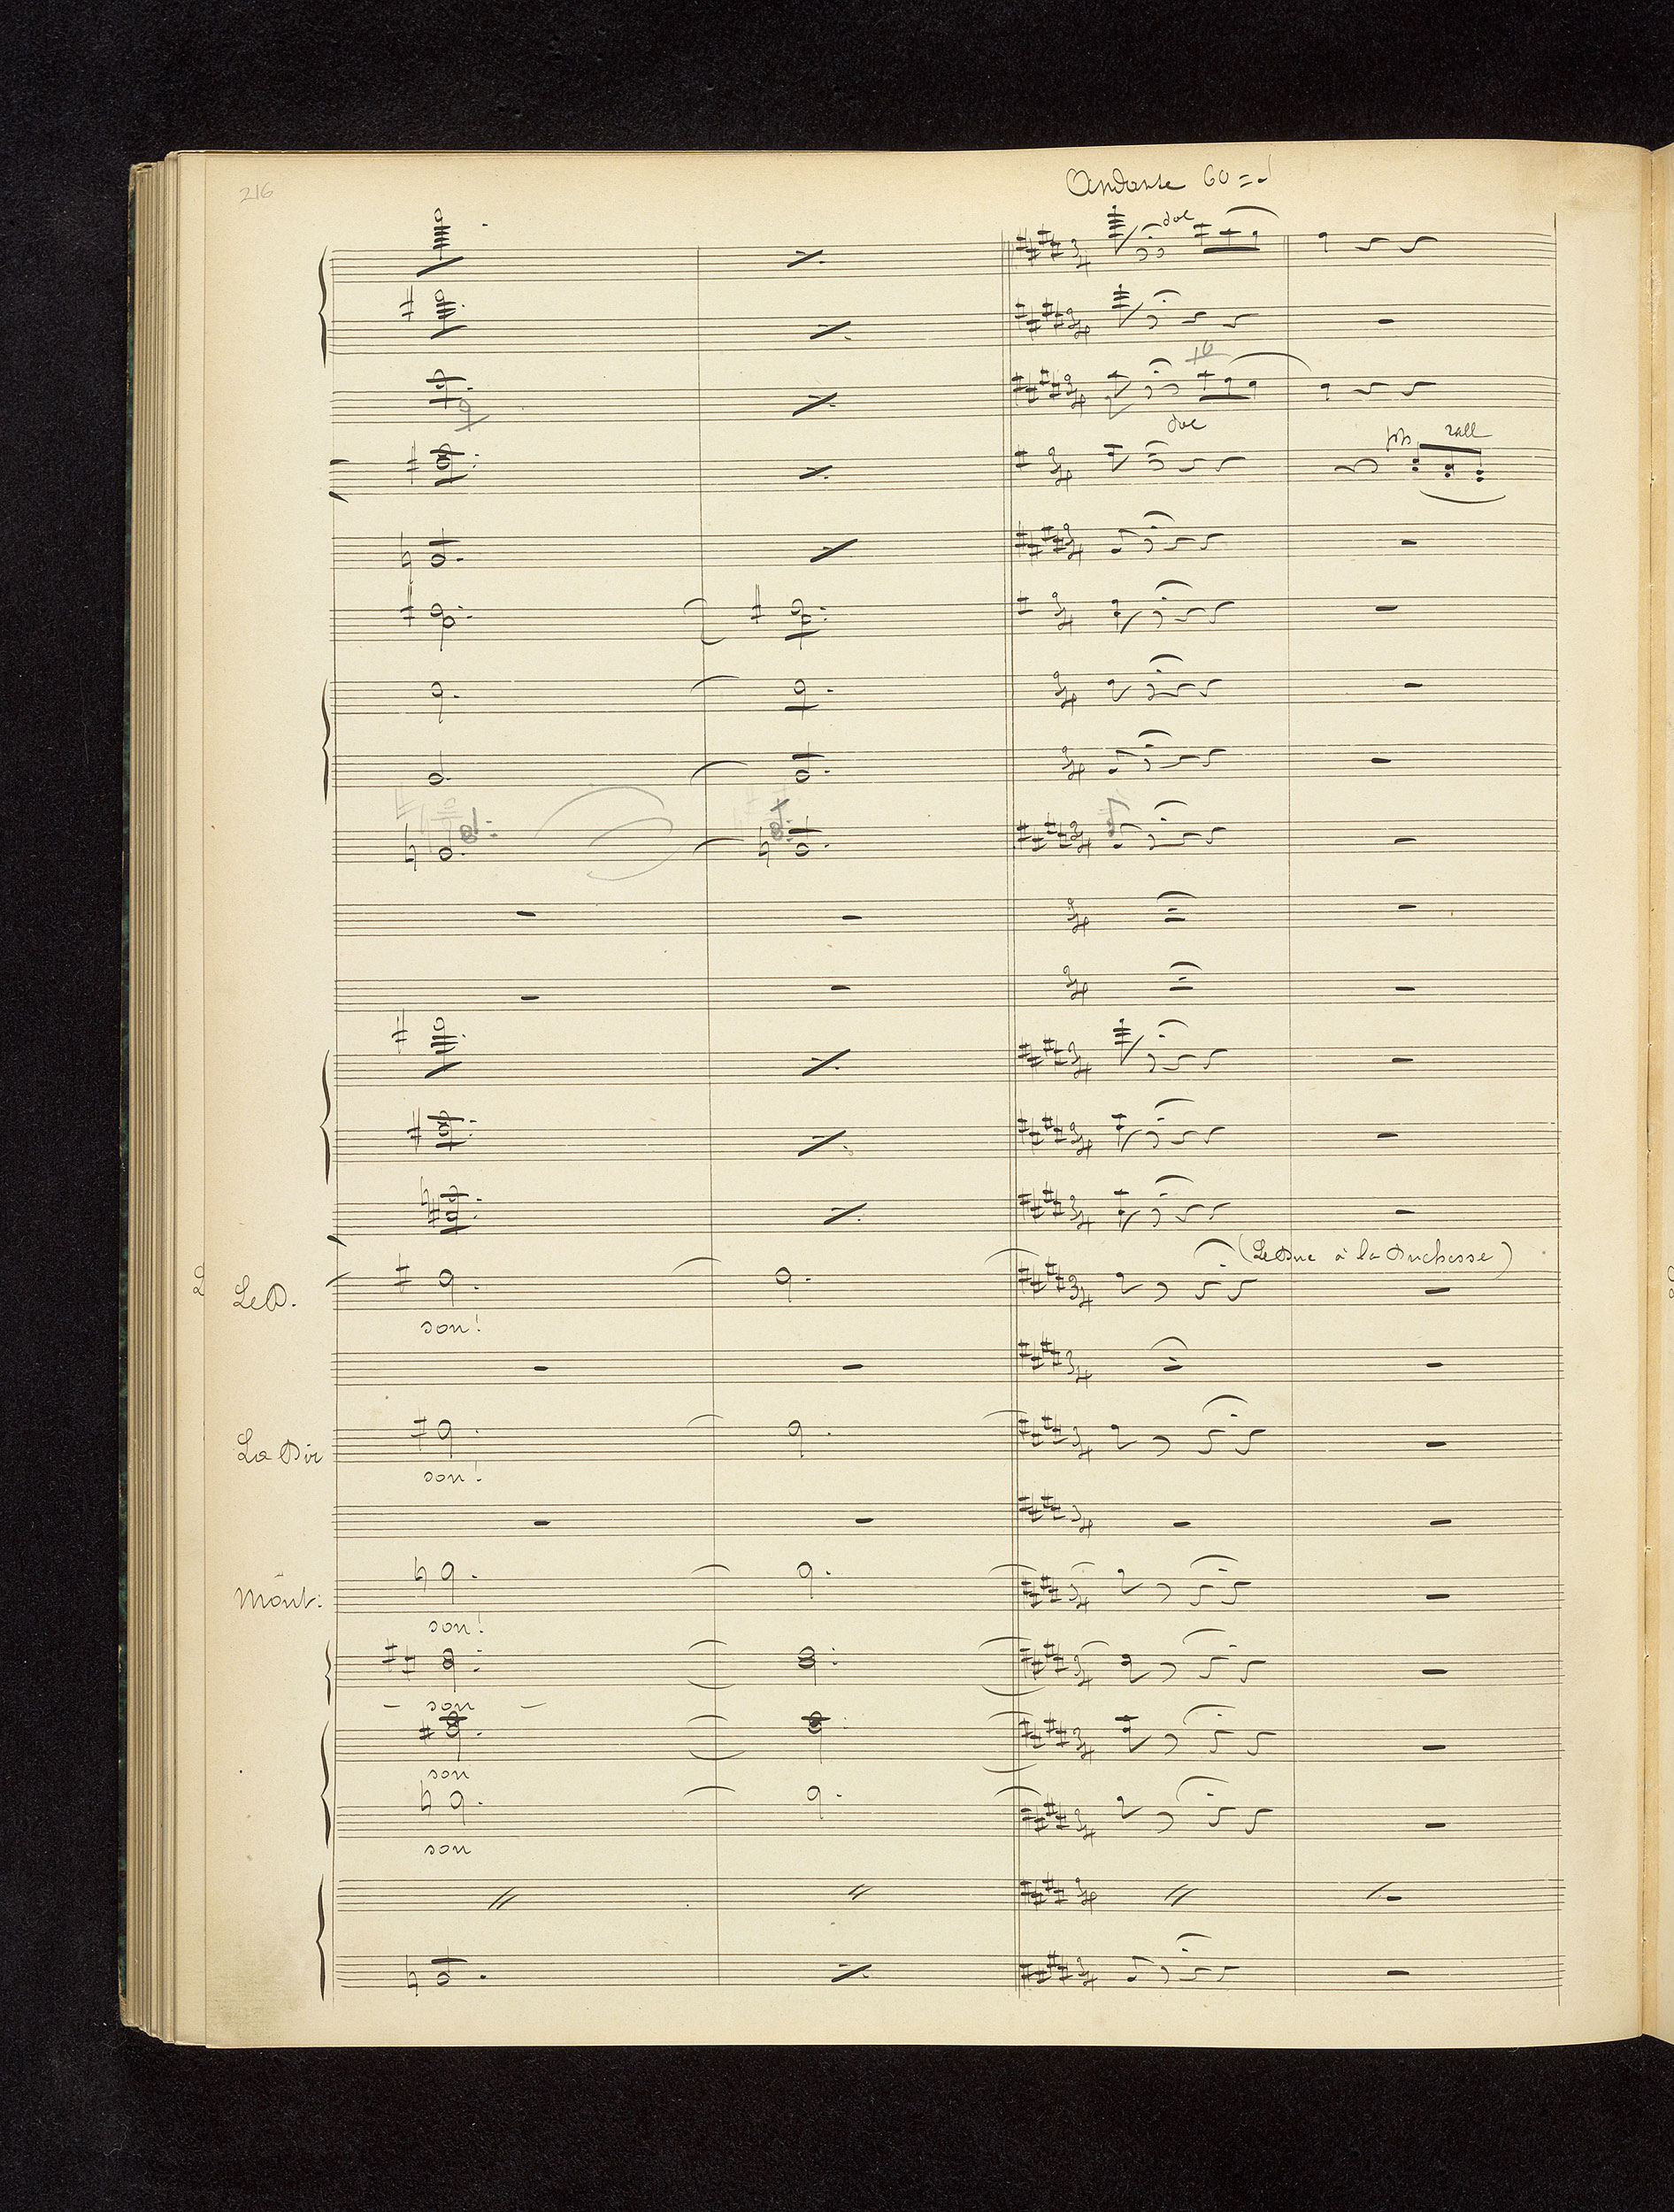 216
Andante 60 =
dol
dol
pp rall
(Le Duc à la Duchesse)
Le D.
son!
La Dir
son!
Mont:
son!
- son -
son
son